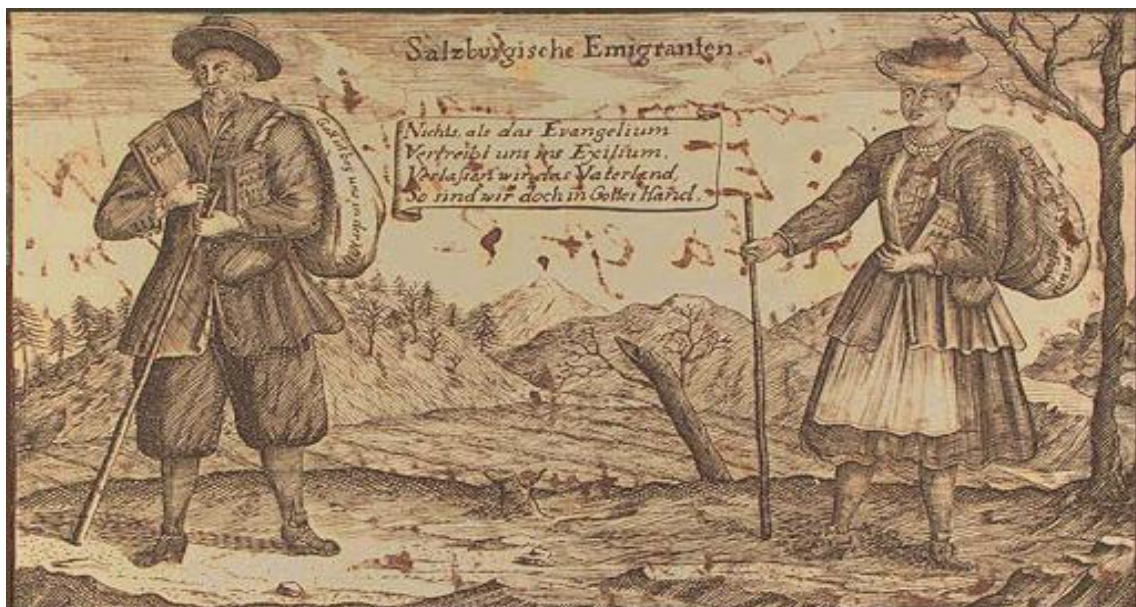 Salzburgische Emigranten.
Nichts, als das Evangelium
Vertreibt uns ins Exilium,
Verlaßen wir das Vaterland,
So sind wir doch in Gottes Hand.
Gott ist bey uns in der
Augs
Confes